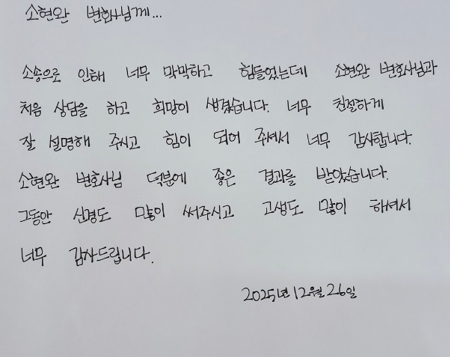 소현완 변호사님께...
소송으로 인해 너무 막막하고 힘들었는데 소현완 변호사님과
처음 상담을 하고 희망이 생겼습니다. 너무 친절하게
잘 설명해 주시고 힘이 되어 주셔서 너무 감사합니다.
소현완 변호사님 덕분에 좋은 결과를 받았습니다.
그동안 신경도 많이 써주시고 고생도 많이 하셔서
너무 감사드립니다.
2025년 12월 26일